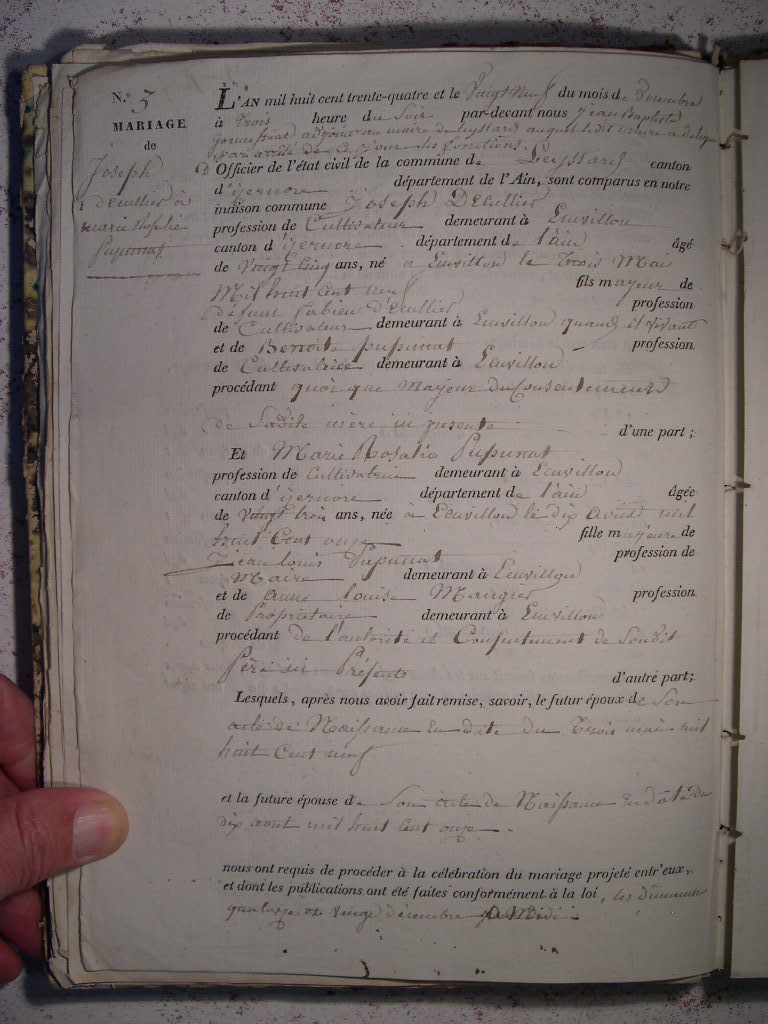 N.° 5
MARIAGE
de
Joseph
Decullier à
marie Rosalie
Pupunat
L'AN mil huit cent trente-quatre et le Vaigt Neuf du mois de Décembre
à Trois heure du Soir par-devant nous jean Baptiste
adjoint au maire de Leyssard auquel ledit maire a délégué
par arrêté de ce jour les fonctions.
d'Officier de l'état civil de la commune de Leyssard canton
d'izernore département de l'Ain, sont comparus en notre
maison commune Joseph Décullier
profession de Cultivateur demeurant à Leuvillon
canton d'izernore département de l'ain âgé
de vaingt cinq ans, né à Leuvillon le Trois Mai
Mil huit Cent neuf fils majeur de
défunt Fabien Décullier profession
de Cultivateur demeurant à Leuvillon quand il vivait
et de Benoite pupunat profession
de Cultivatrice demeurant à Leuvillon
procédant quoi que Majeur du Consentement
de Sadite mère ici présente d'une part ;
Et Marie Rosalie Pupunat
profession de Cultivatrice demeurant à Leuvillon
canton d'izernore département de l'ain âgée
de vaingt trois ans, née à Leuvillon le dix aout mil
huit Cent onze fille majeure de
Jean louis Pupunat profession de
Maire demeurant à Leuvillon
et de anne louise profession
de Proprietaire demeurant à Leuvillon
procédant de l'autorité et Consentement de Soudit
Père ici Présent d'autre part ;
Lesquels, après nous avoir fait remise, savoir, le futur époux de Son
acte de Naissance en date du Trois mai mil
huit Cent neuf
et la future épouse de Son acte de Naissance en date du
Dix aout mil huit Cent onze .
nous ont requis de procéder à la célébration du mariage projeté entr'eux,
et dont les publications ont été faites conformément à la loi, les dimanches
quatorze et vingt décembre à Midi